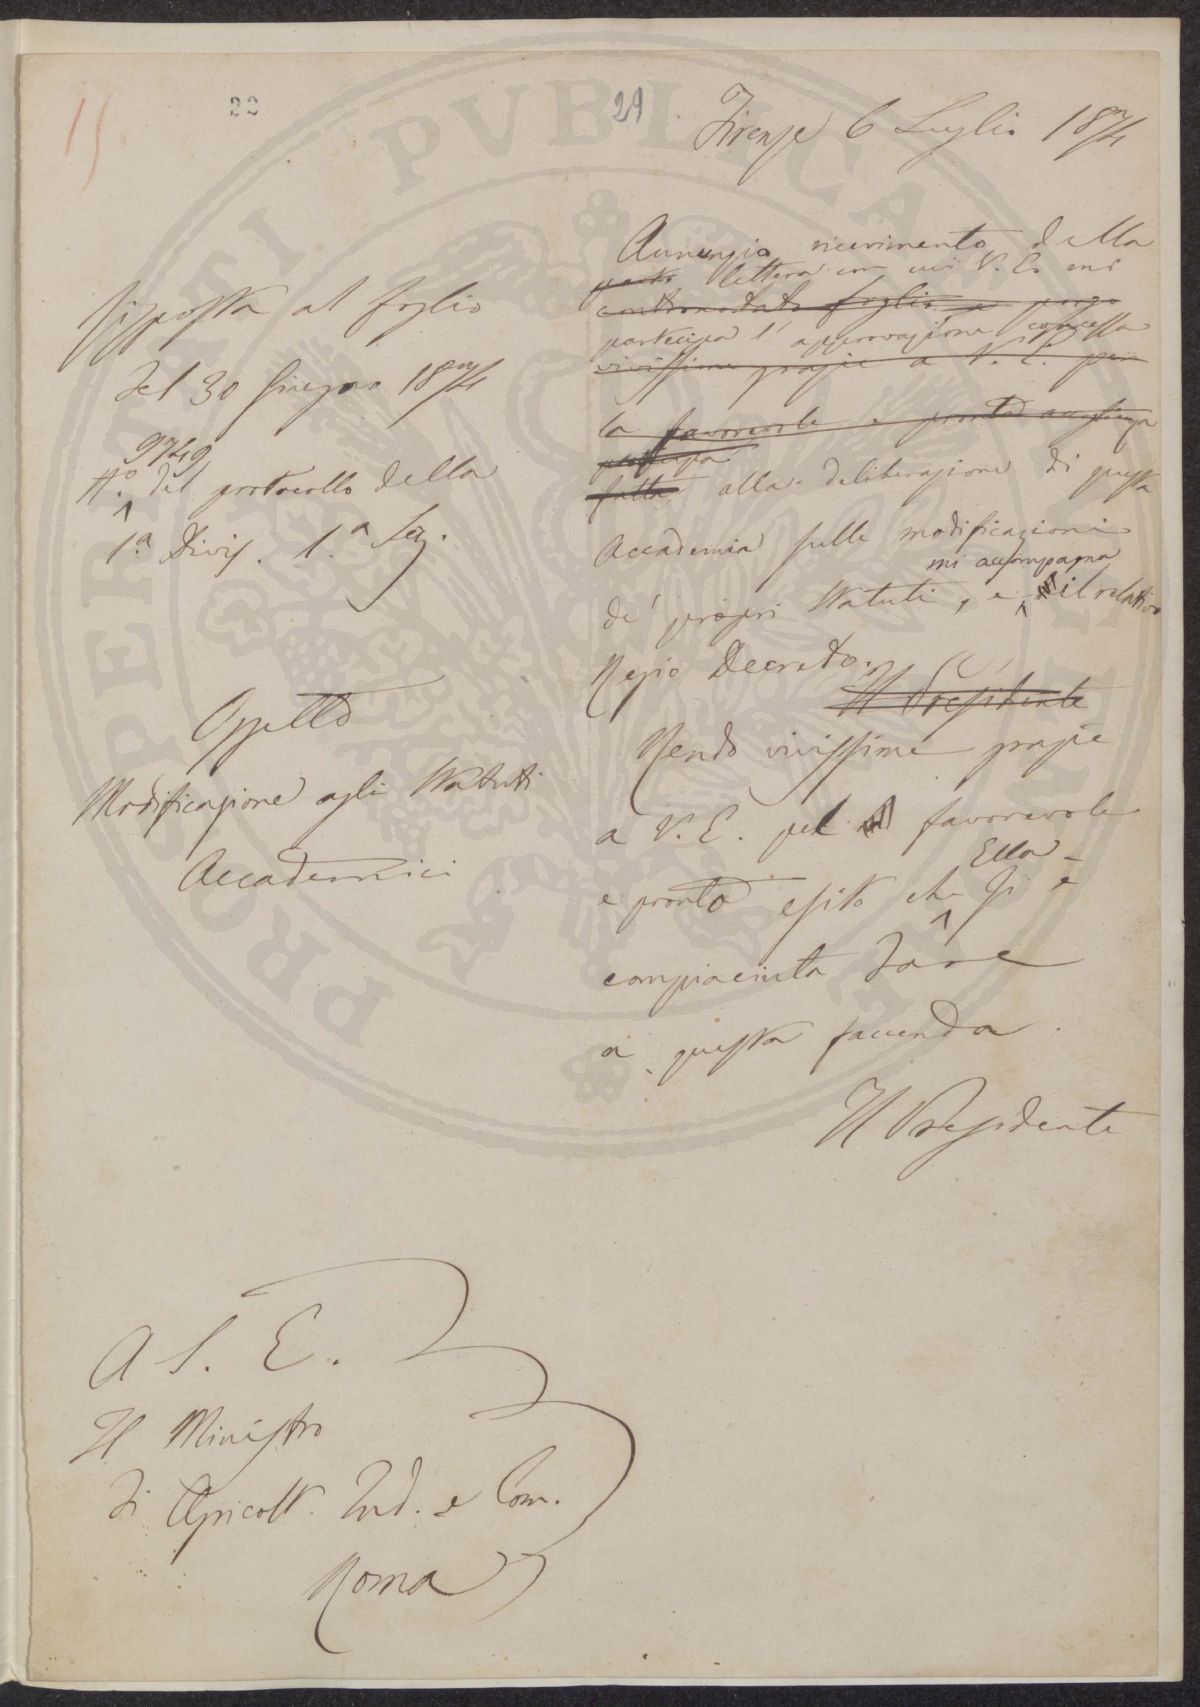 15.
22
29
Firenze 6 Luglio 1874
Risposta al foglio
del 30 Giugno 1874
9749
N.° del protocollo della
1.a Divis. 1.a Sez.
Oggetto
Modificazione agli Statuti
Accademici
Annunzio ricevimento della
lettera con cui V. E. mi
contronotato foglio e porgo
partecipa l'approvazione concessa
vivissime grazie a V. E. per
la favorevole e pronta accoglienza
fatta alla deliberazione di questa
Accademia sulle modificazioni
mi accompagna
de' propri Statuti, e il relativo
Regio Decreto.
Il Presidente
Rendo vivissime grazie
a V. E. pel favorevole
Ella
e pronto esito che si è
compiaciuta dare
a questa faccenda.
Il Presidente
A S. E.
Il Ministro
di Agricolt. Ind. e Com.
Roma
PROPERNASI PVBLICAE